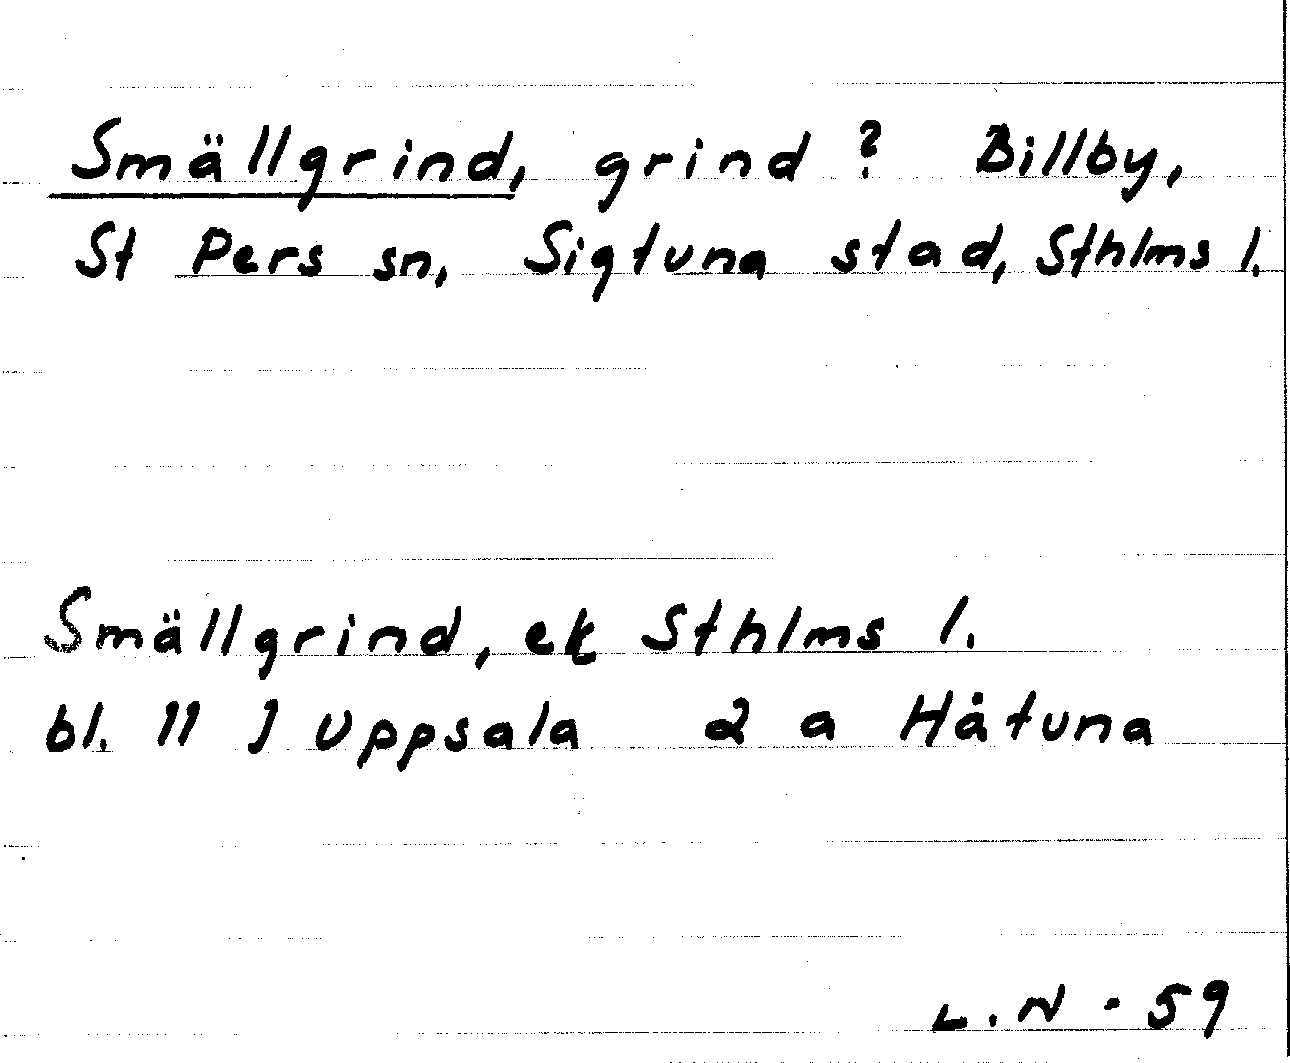 Smällgrind, grind? Billby,
St Pers sn, Sigtuna stad, Sthlms l.
Smällgrind, ek Sthlms l.
bl. 11 J Uppsala 2 a Håtuna
L.N - 59